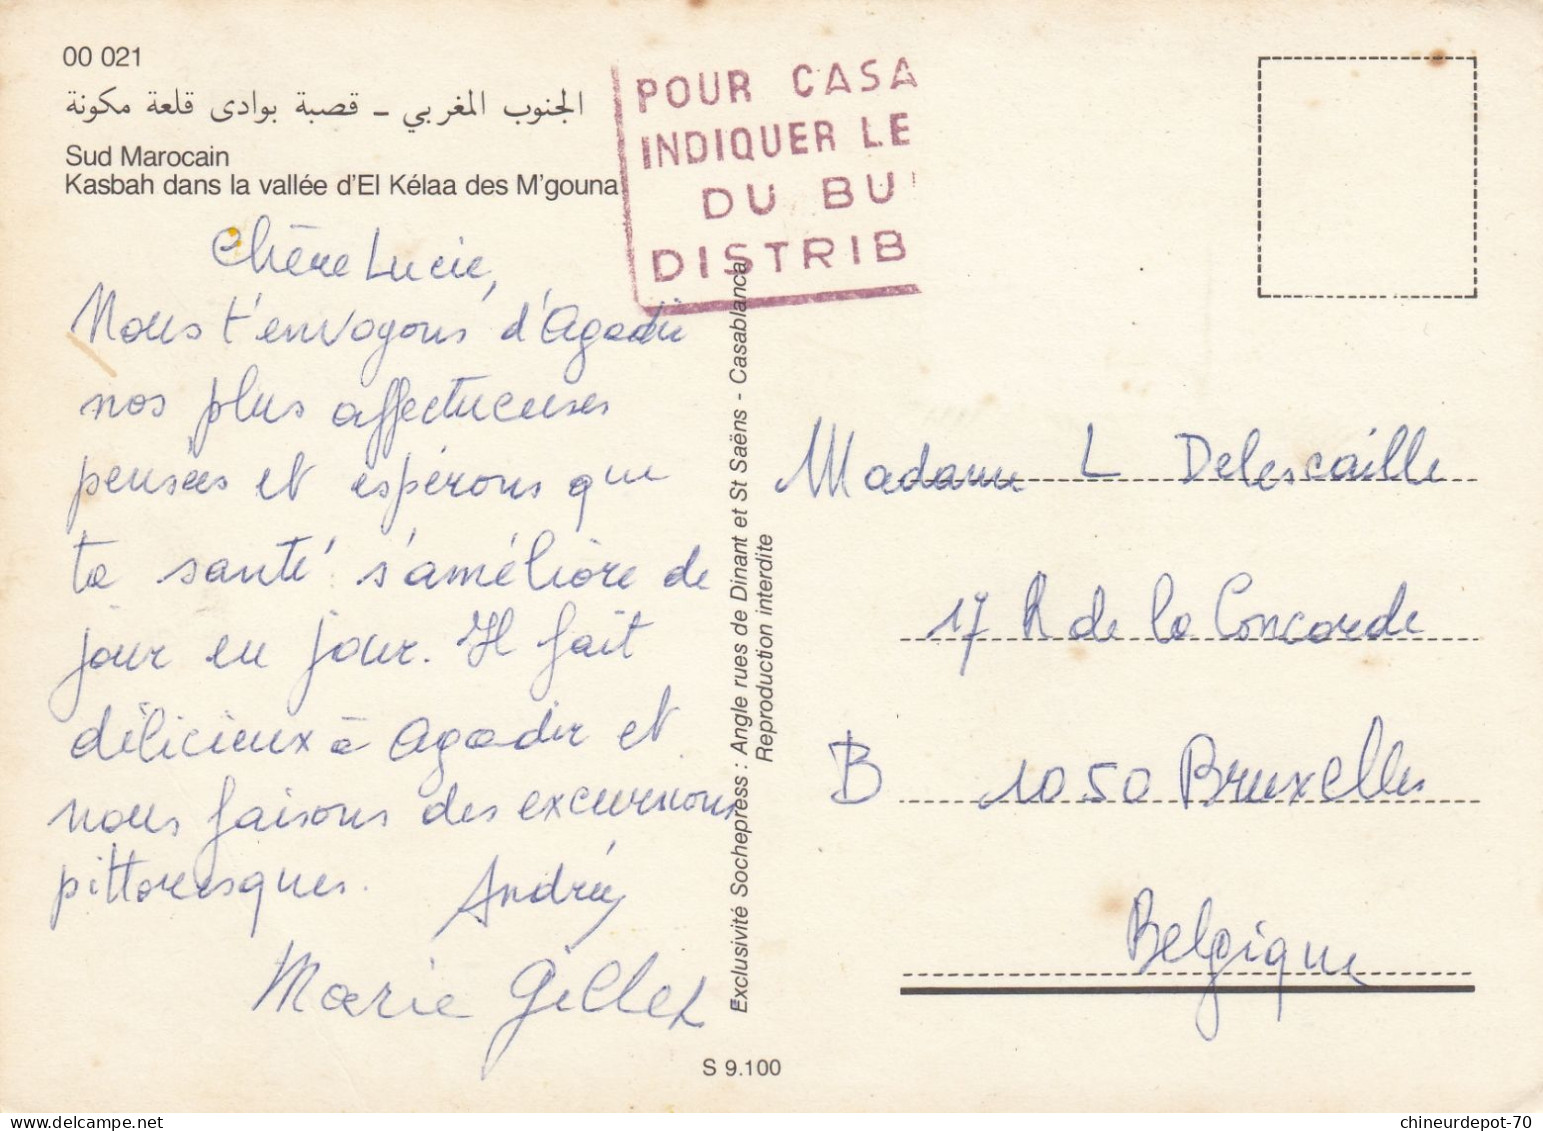 00 021
الجنوب المغربي - قصبة بوادى قلعة مكونة
Sud Marocain
Kasbah dans la vallée d'El Kélaa des M'gouna
POUR CASA
INDIQUER LE
DU BU
DISTRIB
Chère Lucie,
Nous t'envoyons d'Agadir
nos plus affectueuses
pensées et espérons que
ta santé s'améliore de
jour en jour. Il fait
délicieux à Agadir et
nous faisons des excursions
pittoresques. Andrée
Marie Gillet
Exclusivité Sochepress : Angle rues de Dinant et St Saëns - Casablanca
Reproduction interdite
S 9.100
Madame L Delescaille
17 R de la Concorde
B 1050 Bruxelles
Belgique
chineurdepot-70